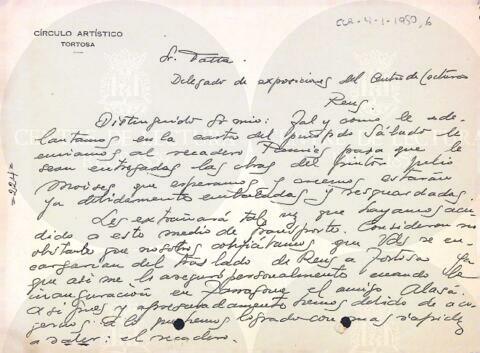 CÍRCULO ARTÍSTICO
TORTOSA
Sr.
Delegado de exposiciones del Centro de Lectura
Reus.
Distinguido Sr mio: Tal y como le ade-
lantamos en la carta del pasado Sábado le
enviamos al recadero para que le
sean entregadas las obras del pintor Julio
Moises, que esperamos y creemos estarán
ya debidamente embaladas y resguardadas.
Les extrañará tal vez que hayamos acu-
dido a este medio de transporte. Consideren no
obstante que nosotros que Vds se en-
cargarían del traslado de Reus a Tortosa
que asi me lo aseguró personalmente cuando la
inauguración en Tarragona el amigo Alasá.
Asi pues y hemos debido de aco-
gernos a lo que hemos logrado con mas rapidez
a saber: el recadero.
=224=